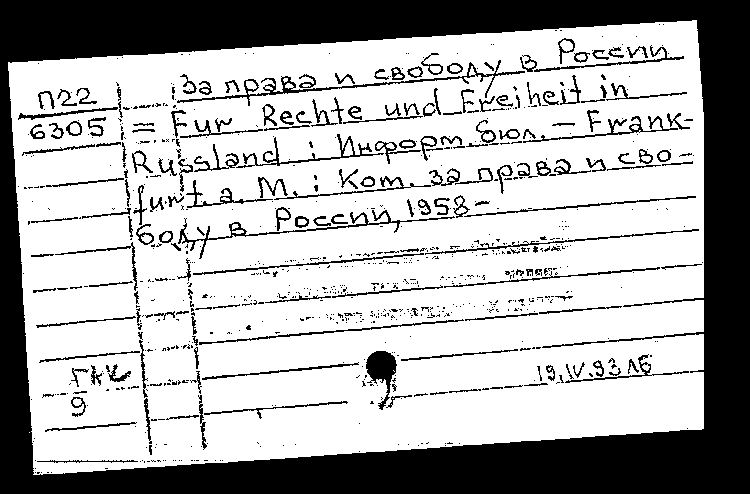 За права и свободу в России
П22
6305
= Fur Rechte und Freiheit in
Russland : Информ. бюл. — Frank-
furt. a. M. : Ком. за права и сво-
боду в России, 1958-
ГКК
9
19.IV.93 ЛБ